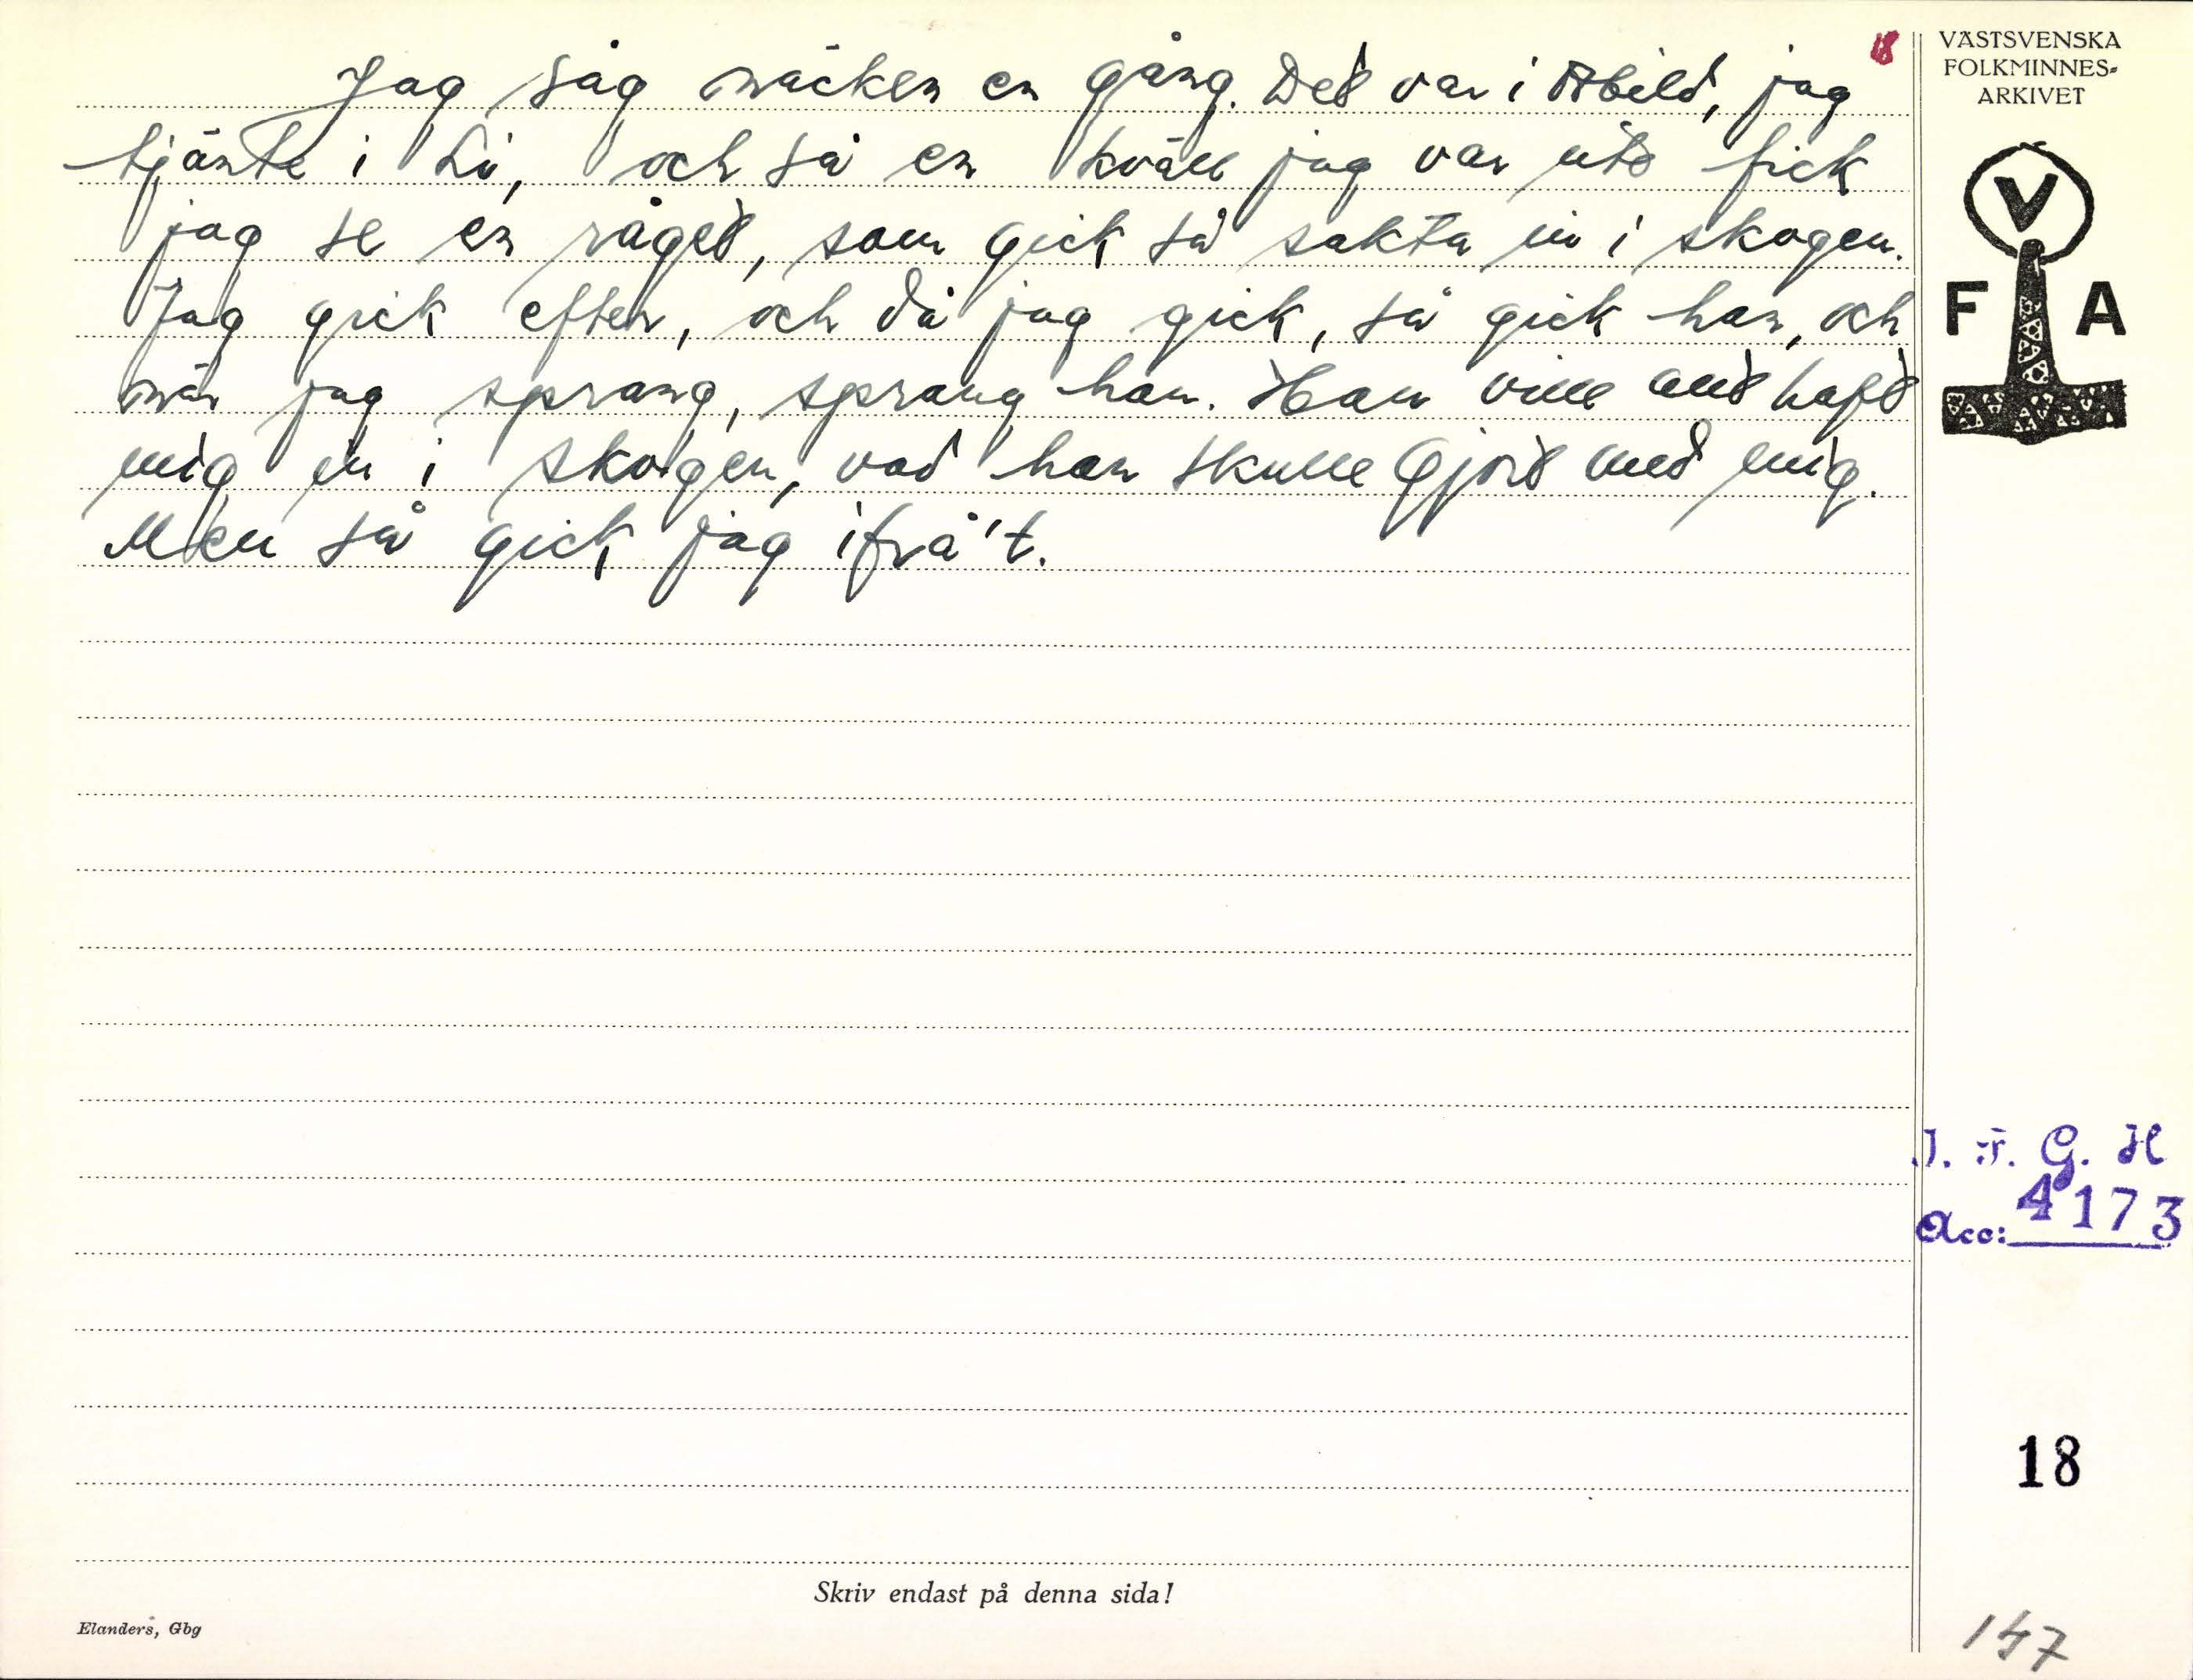 18
Jag såg näcken en gång. Det var i Abild, jag
tjänte i Li, och så en kväll jag var ute fick
jag se en råget, som gick så sakta in i skogen.
Jag gick efter, och då jag gick, så gick han, och
när jag sprang, sprang han. Han ville med haft
mig in i skogen, vad han skulle gjort med mig.
Men så gick jag ifrå't.
VÄSTSVENSKA
FOLKMINNES-
ARKIVET
V
F A
I. F. G. H
Acc: 4173
18
Skriv endast på denna sida!
Elanders, Gbg
147